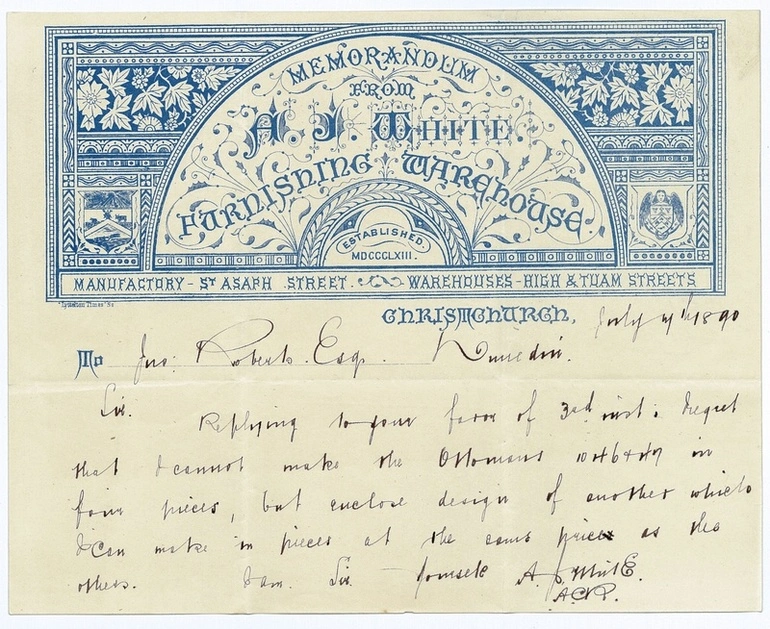 MEMORANDUM
FROM
A. J. WHITE.
FURNISHING WAREHOUSE
ESTABLISHED.
MDCCCLXIII.
MANUFACTORY - ST ASAPH STREET. WAREHOUSES - HIGH & TUAM STREETS
CHRISTCHURCH, July 1890
To Jno. Roberts. Esq. Dunedin.
Sir. Replying to your favor of 3rd inst. I regret
that I cannot make the Ottomans in
four pieces, but enclose design of another which
I can make in pieces at the same price as the
others. I am. Sir A. J. White.